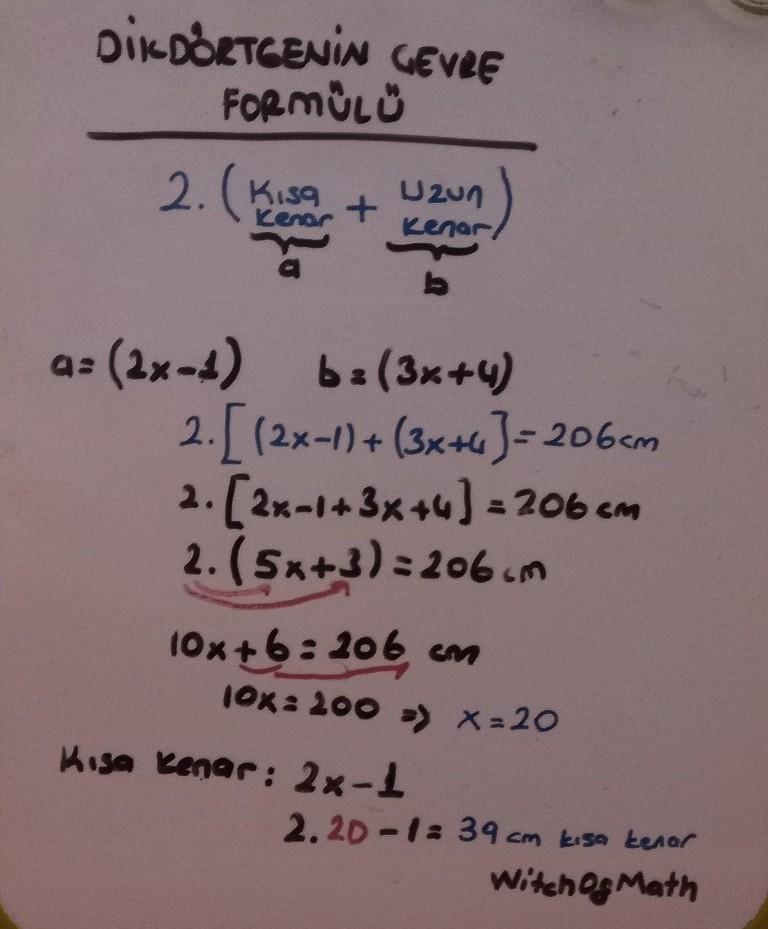 DİKDÖRTGENİN ÇEVRE
FORMÜLÜ
2. (Kısa kenar + Uzun kenar)
a b
a = (2x-1) b = (3x+4)
2. [(2x-1) + (3x+4] = 206 cm
2. [2x-1+3x+4] = 206 cm
2. (5x+3) = 206 cm
10x+6 = 206 cm
10x = 200 => x = 20
Kısa kenar: 2x-1
2.20 - 1 = 39 cm kısa kenar
WitchOfMath